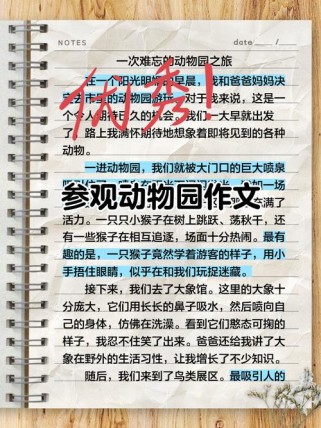 NOTES
date / /
一次难忘的动物园之旅
在一个阳光明媚的早晨，我和爸爸妈妈决
定去市里的动物园游玩。对于我来说，这是一
个令人期待已久的机会。我们一大早就出发
了，路上我满怀期待地想象着即将见到的各种
动物。
优秀！
一进动物园，我们就被大门口的巨大喷泉
参观动物园作文
活力。一只只小猴子在树上跳跃、荡秋千，还
有一些猴子在相互追逐，场面十分热闹。最有
趣的是，一只猴子竟然学着游客的样子，用小
手捂住眼睛，似乎在和我们玩捉迷藏。
接下来，我们去了大象馆。这里的大象十
分庞大，它们用长长的鼻子吸水，然后喷向自
己的身体，仿佛在洗澡。看到它们憨态可掬的
样子，我忍不住笑了出来。爸爸还给我讲了大
象在野外的生活习性，让我增长了不少知识。
随后，我们来到了鸟类展区。最吸引人的